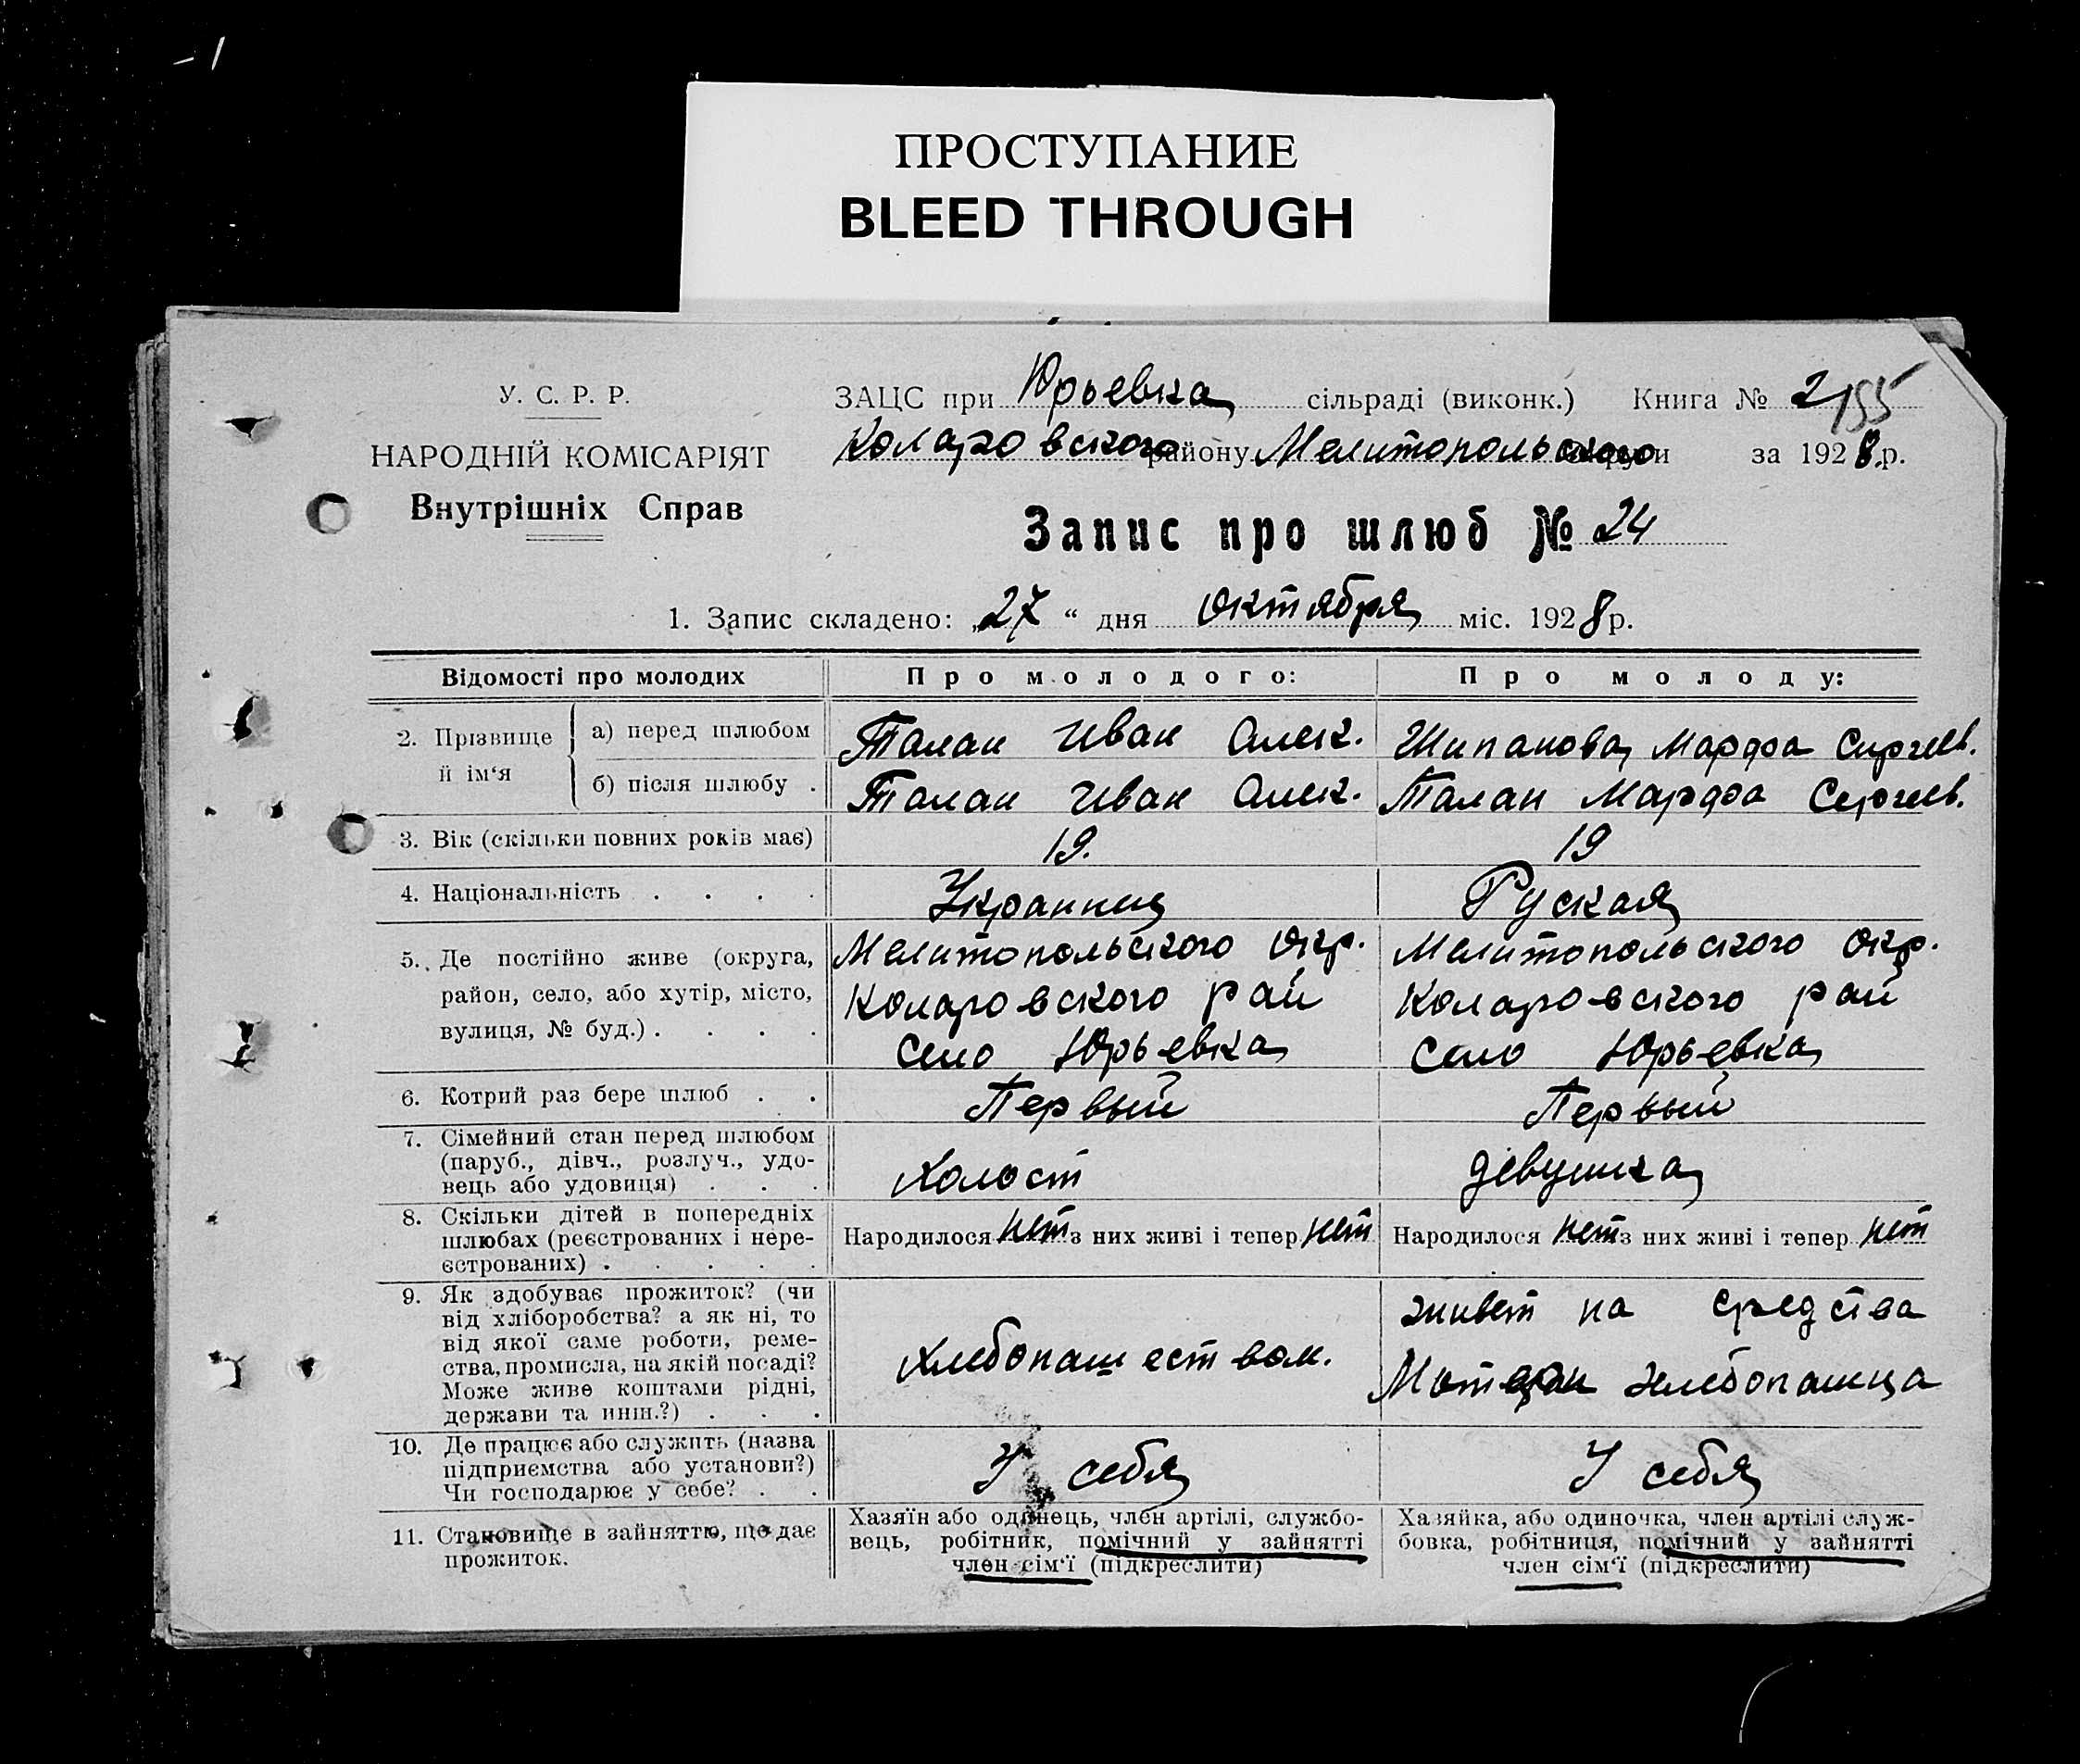 ПРОСТУПАНИЕ
BLEED THROUGH
У. С. Р. Р.
НАРОДНІЙ КОМІСАРІЯТ
Внутрішніх Справ
ЗАЦС при Юрьевка сільраді (виконк.) Книга № 2
Коларовского району Мелитопольского округи за 1928 р.
Запис про шлюб № 24
1. Запис складено: „27“ дня октября міс. 1928 р.
Відомості про молодих Про молодого: Про молоду:
2. Прізвище й ім‘я
а) перед шлюбом Талан Иван Алек. Шипанова Марфа Сергеев.
б) після шлюбу . Талан Иван Алек. Талан Марфа Сергеев.
3. Вік (скільки повних років має) 19. 19
4. Національність . . . . Украинец Руская
5. Де постійно живе (округа, район, село, або хутір, місто, вулиця, № буд.) . . . .
Мелитопольского окр. Мелитопольского окр.
Коларовского рай Коларовского рай
Село Юрьевка Село Юрьевка
6. Котрий раз бере шлюб . . Первый Первый
7. Сімейний стан перед шлюбом
(паруб., дівч., розлуч., удо-
вець або удовиця) . . . Холост девушка
8. Скільки дітей в попередніх
шлюбах (реєстрованих і нере-
єстрованих) . . . . .
Народилося нет з них живі і тепер нет Народилося нет з них живі і тепер нет
9. Як здобуває прожиток? (чи
від хліборобства? а як ні, то
від якої саме роботи, реме-
ства, промисла, на якій посаді?
Може живе коштами рідні,
держави та инш.?) . . .
Хлебопашеством. живет на средства
хлебопашца
10. Де працює або служить (назва
підприємства або установи?)
Чи господарює у себе? . . У себя У себя
11. Становище в зайняттю, що дає
прожиток.
Хазяїн або одинець, член артілі, службо-
вець, робітник, помічний у зайнятті
член сім‘ї (підкреслити)
Хазяйка, або одиночка, член артілі служ-
бовка, робітниця, помічний у зайнятті
член сім‘ї (підкреслити)